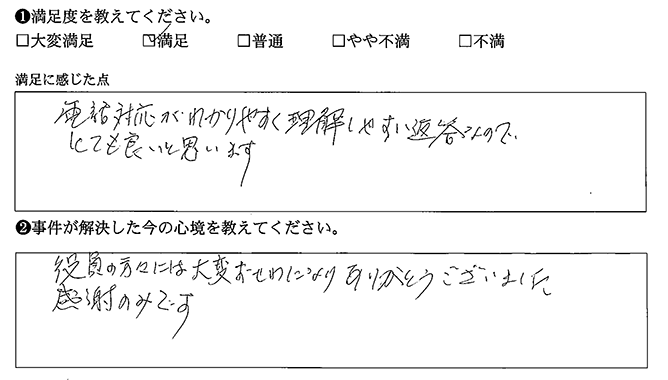 ❶満足度を教えてください。
□大変満足 ☑満足 □普通 □やや不満 □不満
満足に感じた点
電話対応がわかりやすく理解しやすい返答なので、
とても良いと思います
❷事件が解決した今の心境を教えてください。
役員の方々には大変おせわになりありがとうございました。
感謝のみです